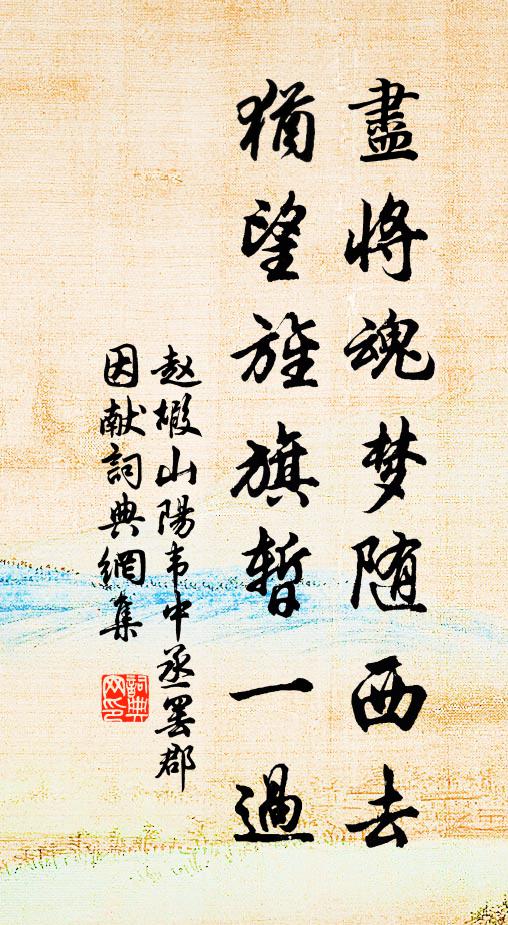 盡將魂梦随西去
猶望旌旗暫一過
赵嘏山陽韦中丞罢郡
因献詞典網集
詞典
网印